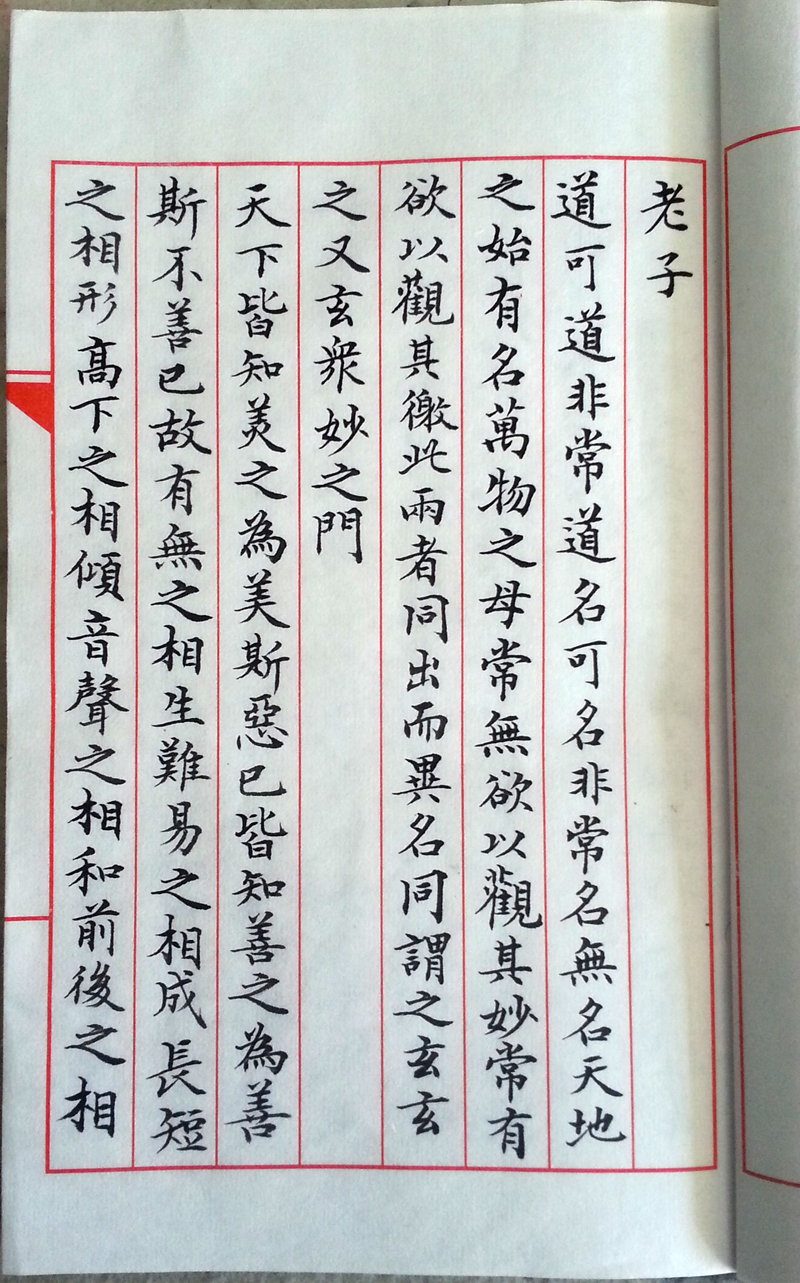 老子
道可道非常道名可名非常名無名天地
之始有名萬物之母常無欲以觀其妙常有
欲以觀其徼此兩者同出而異名同謂之玄玄
之又玄衆妙之門
天下皆知美之為美斯惡已皆知善之為善
斯不善已故有無之相生難易之相成長短
之相形高下之相傾音聲之相和前後之相